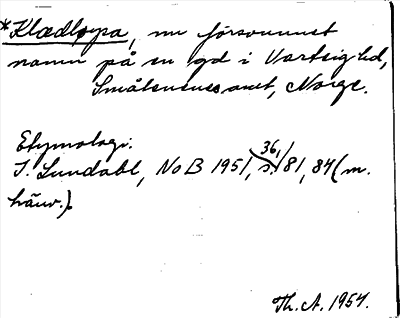 *Klædloypa, nu försvunnet
namn på en gd i Varteig hd,
Smålenenes amt, Norge.
Etymologi.
I. Lundahl, NoB 1951, 36, s. 81, 84 (m.
hänv.).
Th. A. 1954.